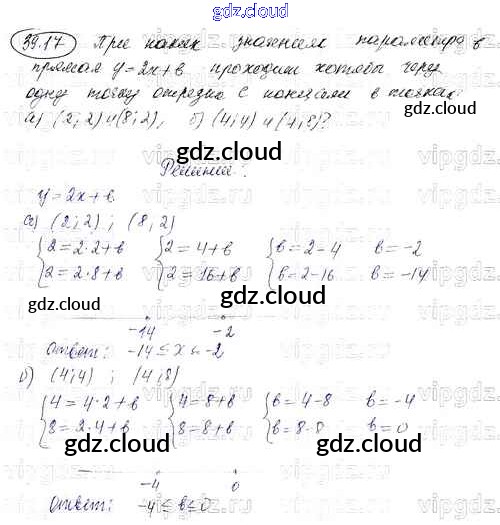 gdz.cloud
39.17 При каких значениях параметра в
прямая y=2x+в проходит хотябы через
одну точку отрезка с концами в точках:
а) (2; 2) и (8; 2), б) (4; 4) и (4; 8)?
gdz.cloud
Решение:
y=2x+в
а) (2; 2) ; (8; 2)
{2=2·2+в {2=4+в {в=2-4 в=-2
{2=2·8+в {2=16+в {в=2-16 в=-14
gdz.cloud gdz.cloud
-14 -2
Ответ: -14≤x≤-2
б) (4; 4) ; (4; 8)
{4=4·2+в {4=8+в {в=4-8 в=-4
{8=2·4+в {8=8+в {в=8-8 в=0
gdz.cloud gdz.cloud
-4 0
gdz.cloud
Ответ: -4≤в≤0